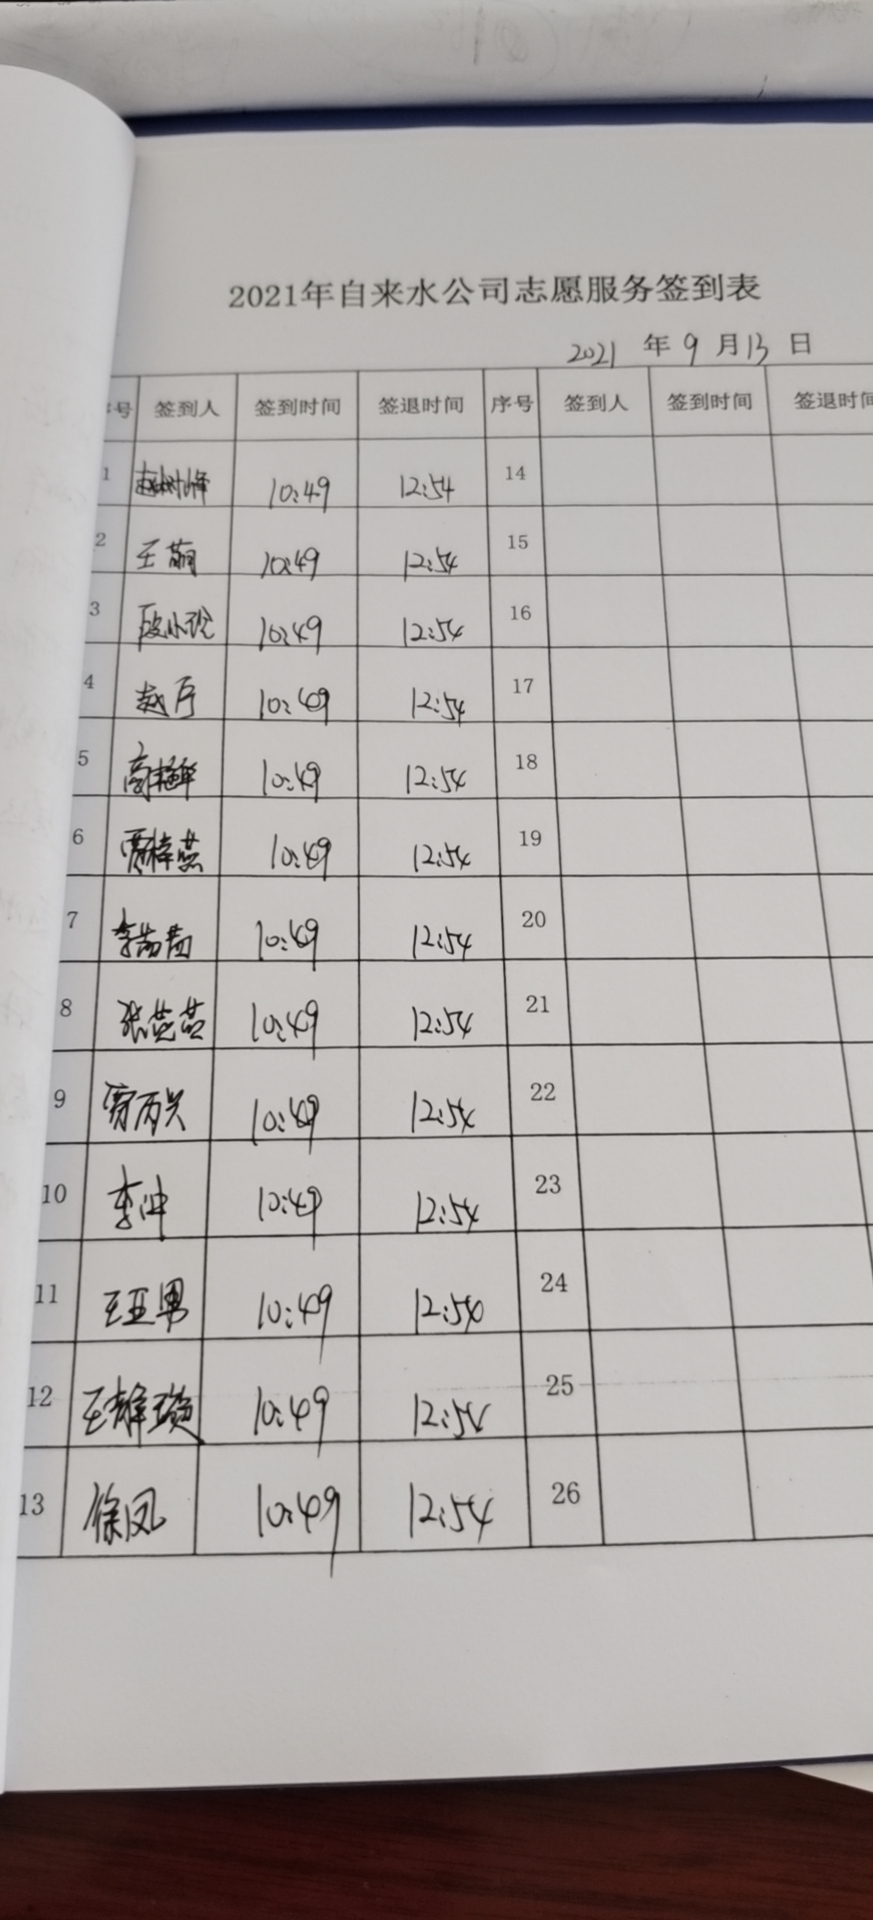 2021年自来水公司志愿服务签到表
2021 年 9 月 13 日
号 签到人 签到时间 签退时间 序号 签到人 签到时间 签退时间
1 10:49 12:54 14
2 王萌 10:49 12:54 15
3 段小 10:49 12:54 16
4 赵 10:49 12:54 17
5 高艳华 10:49 12:54 18
6 贾梓燕 10:49 12:54 19
7 李茜茜 10:49 12:54 20
8 张英英 10:49 12:54 21
9 贾丙兴 10:49 12:54 22
10 李冲 10:49 12:54 23
11 王亚男 10:49 12:54 24
12 王静璇 10:49 12:54 25
13 徐凤 10:49 12:54 26